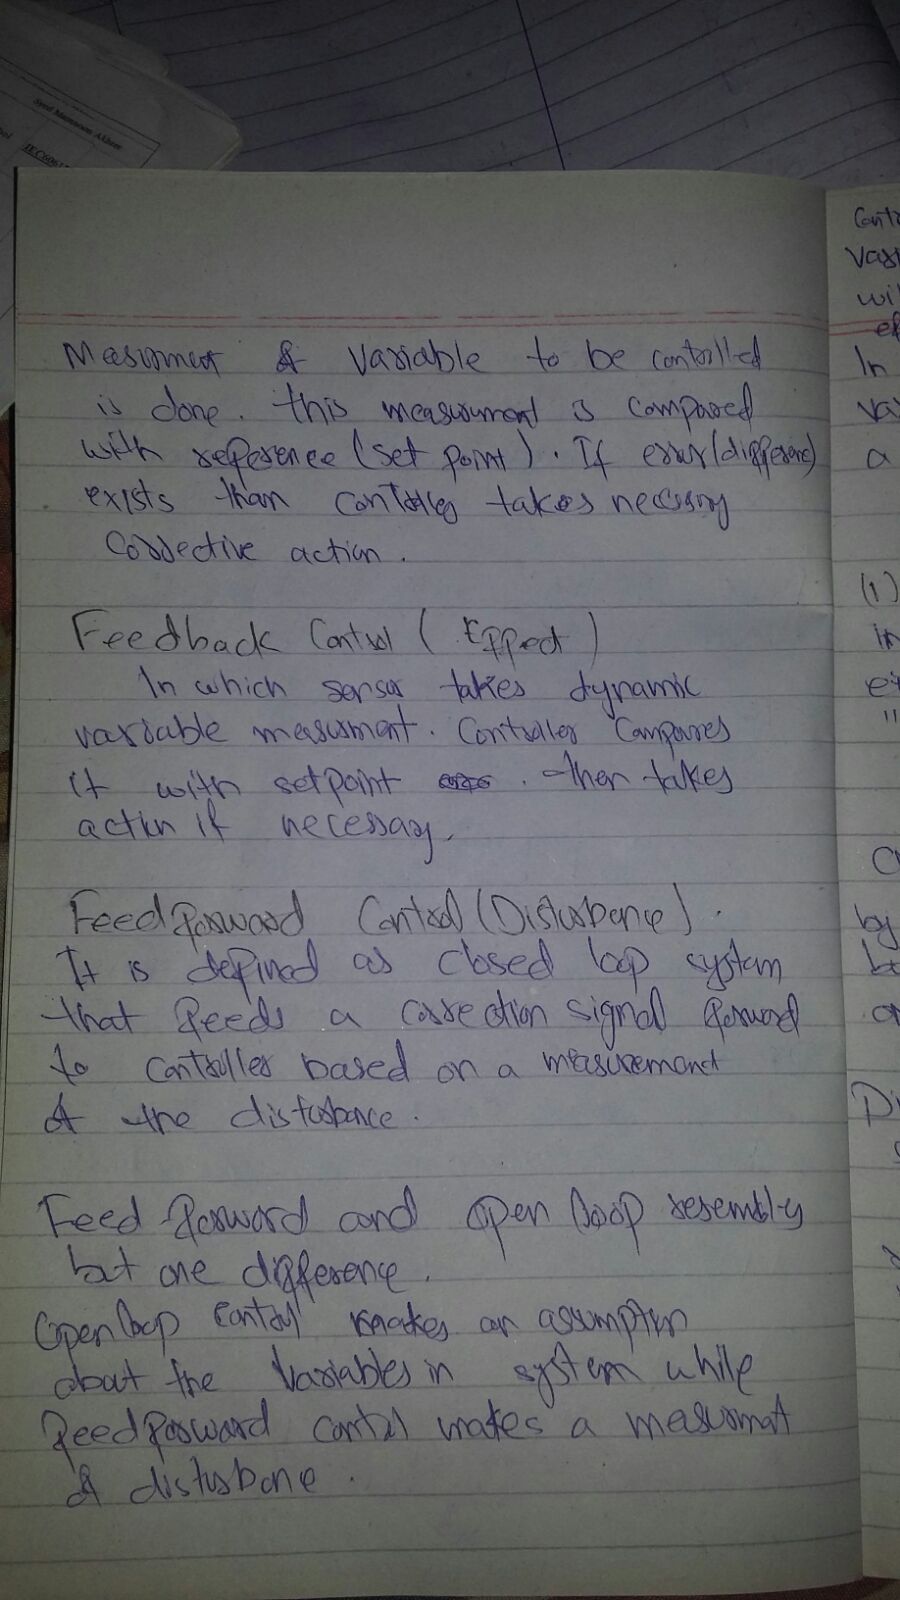 Syed Mansoom Akhtar
Measurment of Variable to be controlled
is done. this measurment is compared
with reference (set point). If error/(difference)
exists than controller takes necessary
corrective action.
Feedback Control (Effect)
In which sensor takes dynamic
variable measurment. Controller Compares
it with setpoint . then takes
action if necessary.
Feedforward Control (Disturbance).
It is defined as closed loop system
that feeds a correction signal forward
to controller based on a measurement
of the disturbance.
Feed forward and open loop resembly
but one difference.
Open loop control makes an assumption
about the variables in system while
feedforward control makes a measurmat
of disturbane.
Vari
wi
ef
In
var
a
(1)
in
"
by
or